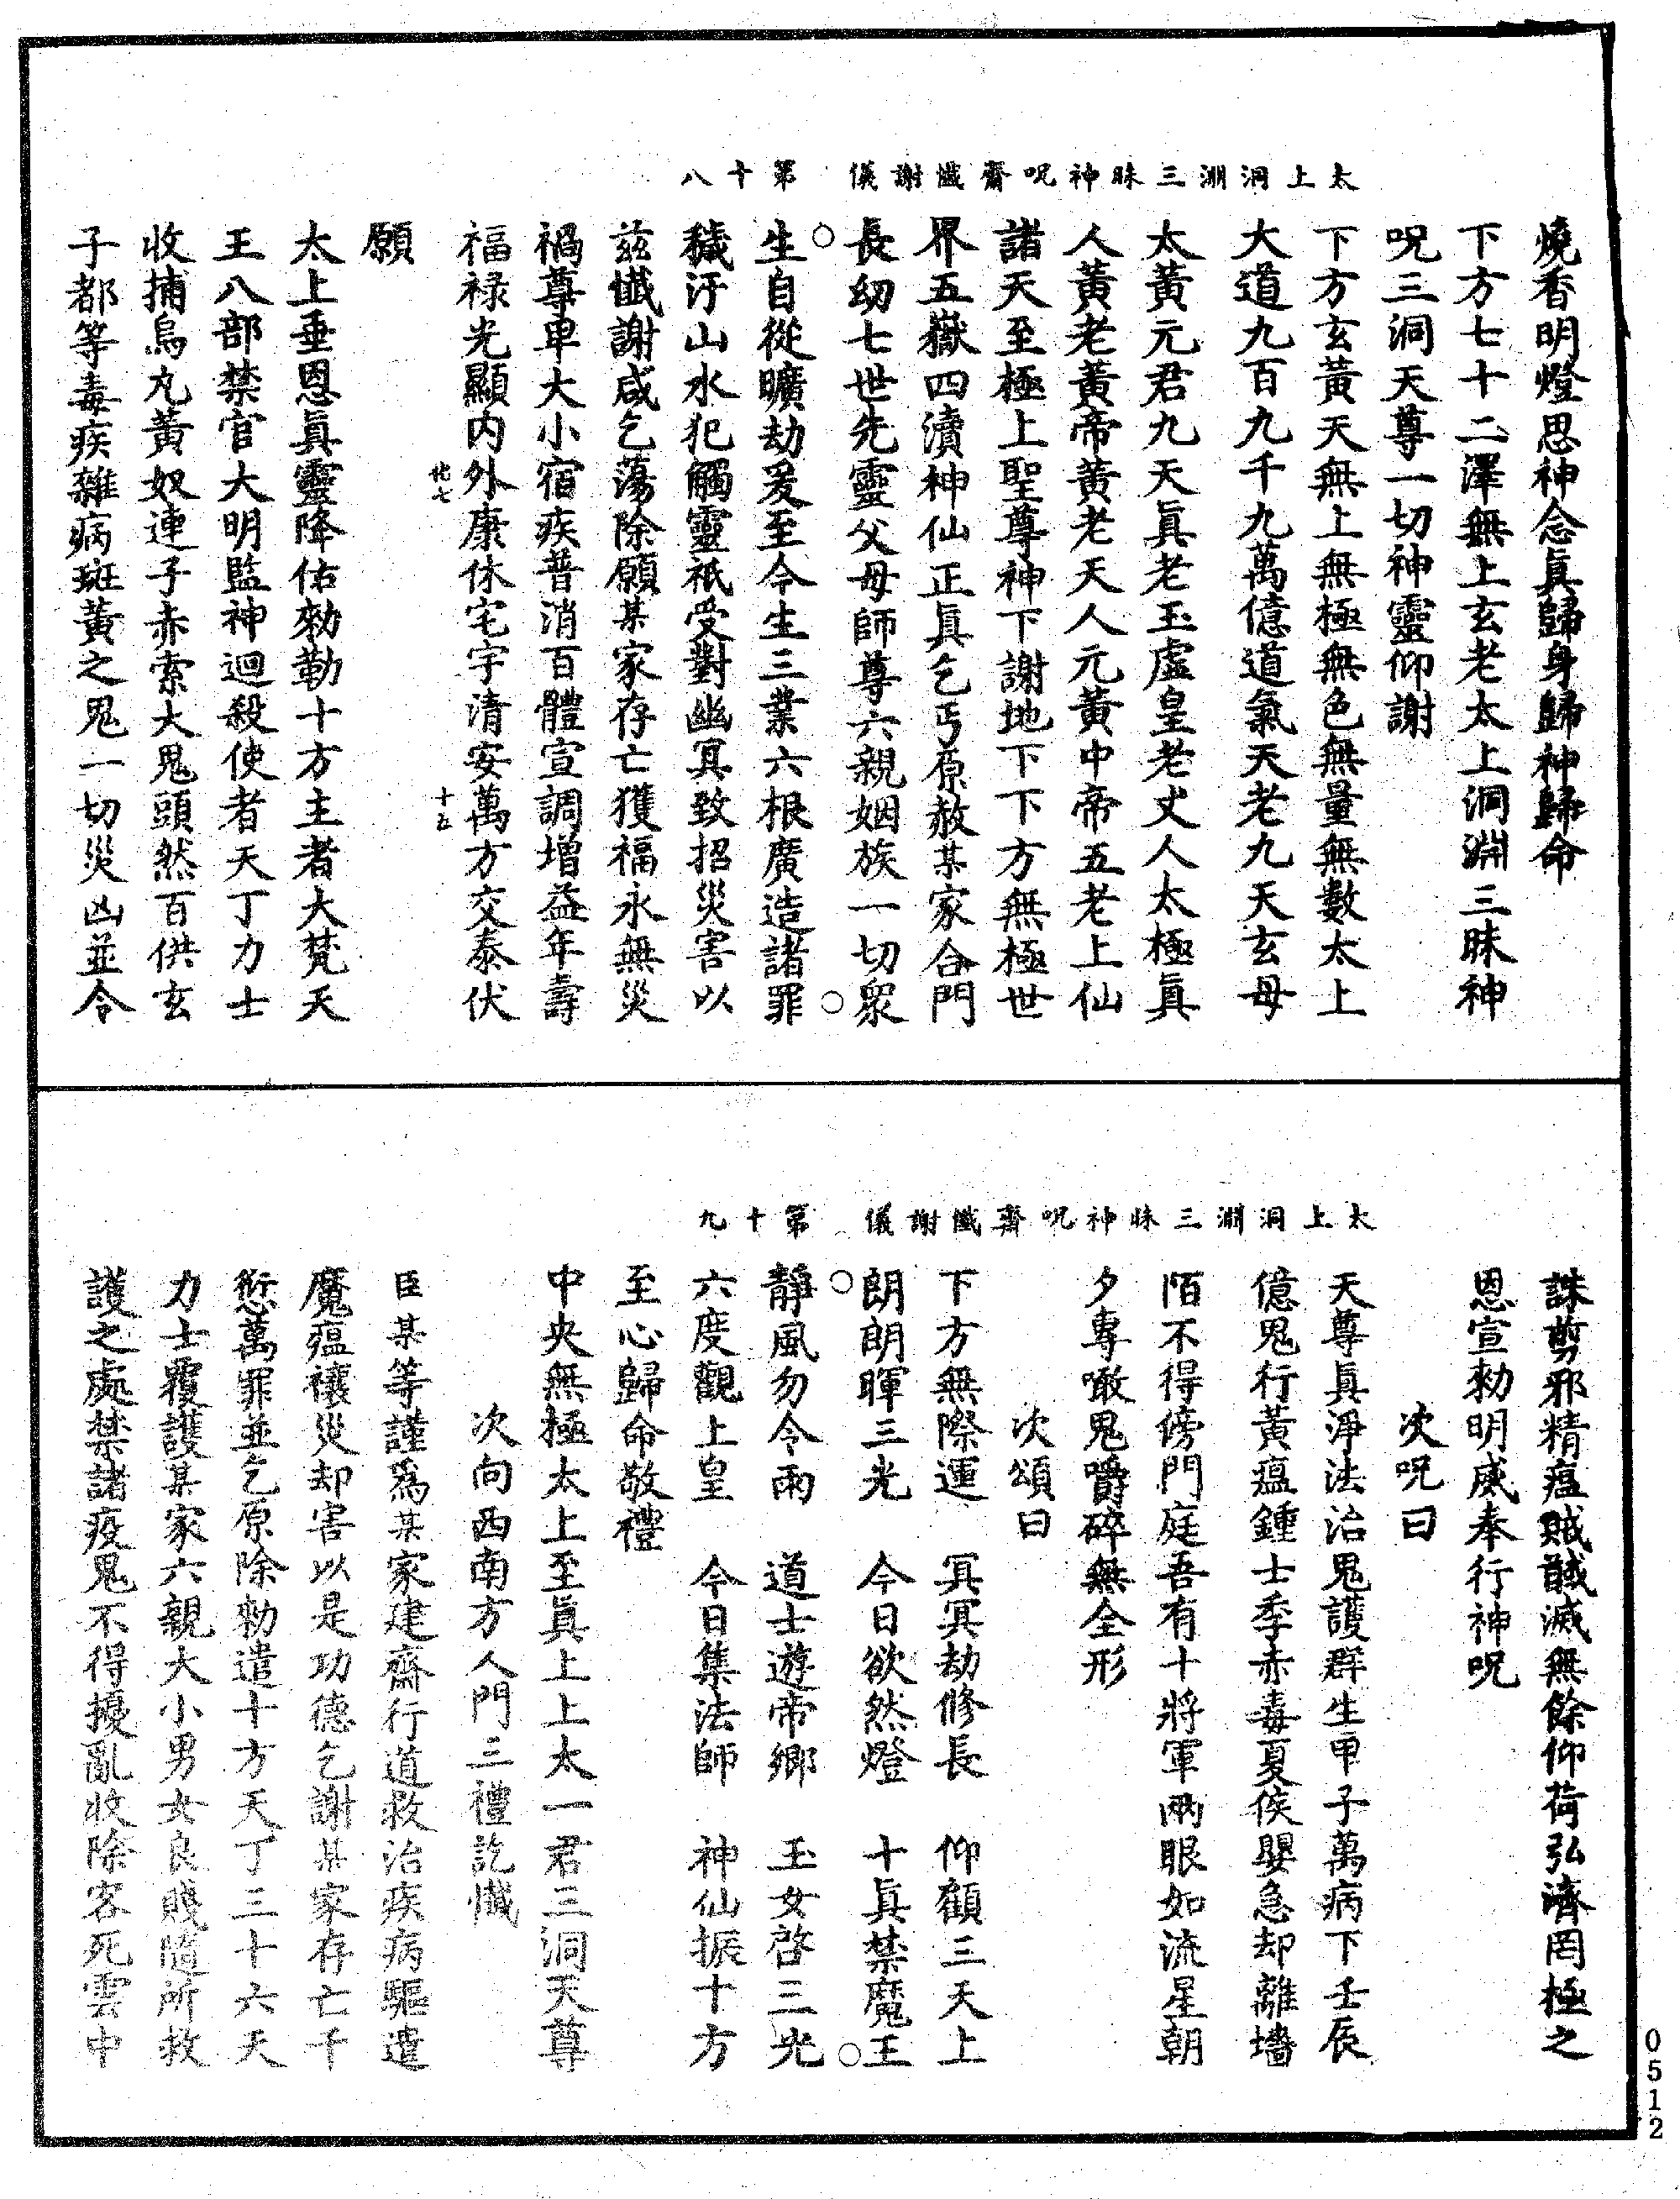 太上洞淵三昧神呪齋懺謝儀 第十八
燒香明燈思神念眞歸身歸神歸命
下方七十二澤無上玄老太上洞淵三昧神
呪三洞天尊一切神靈仰謝
下方玄黃天無上無極無色無量無數太上
大道九百九千九萬億道氣天老九天玄母
太黃元君九天眞老玉虛皇老丈人太極眞
人黃老黃帝黃老天人元黃中帝五老上仙
諸天至極上聖尊神下謝地下下方無極世
界五嶽四瀆神仙正眞乞丐原赦某家合門
長幼七世先靈父母師尊六親姻族一切衆
生自從曠劫爰至今生三業六根廣造諸罪
穢汙山水犯觸靈祇受對幽冥致招災害以
茲懺謝咸乞蕩除願某家存亡獲福永無災
禍尊卑大小宿疾普消百體宣調增益年壽
福祿光顯内外康休宅宇清安萬方交泰伏
十五
願
太上垂恩眞靈降佑勑勒十方主者大梵天
王八部禁官大明監神迴殺使者天丁力士
收捕烏丸黃奴連子赤索大鬼頭然百供玄
子都等毒疾雜病斑黃之鬼一切災凶並令
太上洞淵三昧神呪齋懺謝儀 第十九
誅剪邪精瘟賊馘滅無餘仰荷弘濟罔極之
恩宣勑明威奉行神呪
次呪曰
天尊眞淨法治鬼護群生甲子萬病下壬辰
億鬼行黃瘟鍾士季赤毒夏侯嬰急却離墻
陌不得傍門庭吾有十將軍兩眼如流星朝
夕專噉鬼嚼碎無全形
次頌曰
下方無際運 冥冥劫修長 仰顧三天上
朗朗暉三光 今日欲然燈 十眞禁魔王
靜風勿令雨 道士遊帝鄉 玉女啓三光
六度觀上皇 今日集法師 神仙振十方
至心歸命敬禮
中央無極太上至眞上上太一君三洞天尊
次向西南方人門三禮訖懺
臣某等謹爲某家建齋行道救治疾病驅遣
魔瘟禳災却害以是功德乞謝某家存亡千
愆萬罪並乞原除勑遣十方天丁三十六天
力士覆護某家六親大小男女良賤隨所救
護之處禁諸疫鬼不得擾亂收除客死雲中
0512